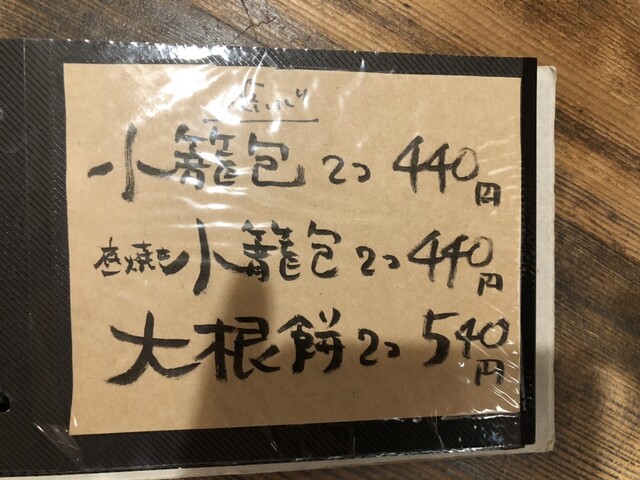 小籠包 2つ 440円
焼き小籠包 2つ 440円
大根餅 2つ 540円